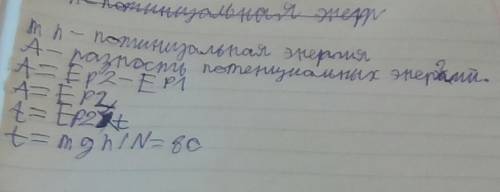 потинцизальная энерг
m h - потинизальная энергия
А - разность потенциальных энергий.
A = Ep2 - Ep1
A = Ep2
t = Ep2/t
t = mgh/N = 8с